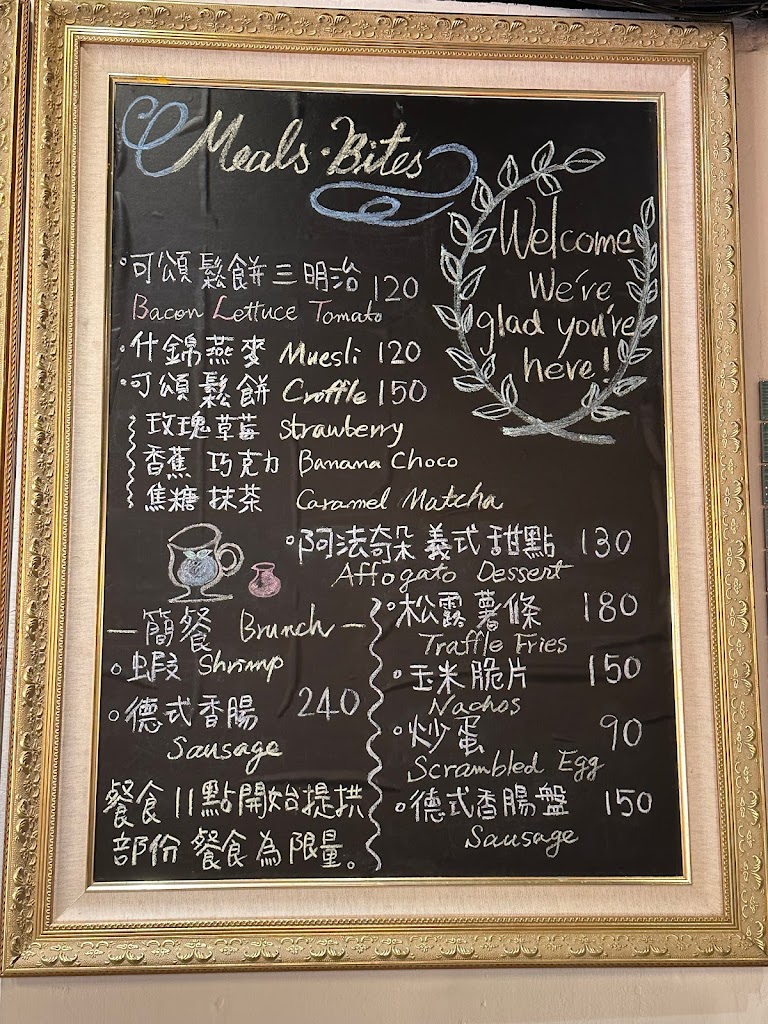 Meals · Bites
Welcome
We've
glad you're
here!
·可頌鬆餅三明治 120
Bacon Lettuce Tomato
·什錦燕麥 Muesli 120
·可頌鬆餅 Croffle 150
玫瑰草莓 Strawberry
香蕉 巧克力 Banana Choco
焦糖 抹茶 Caramel Matcha
·阿法奇朵 義式甜點 130
Affogato Dessert
—簡餐 Brunch—
。蝦 Shrimp
。德式香腸 240
Sausage
餐食11點開始提拱
部份餐食為限量。
。松露薯條 180
Traffle Fries
·玉米脆片 150
Nachos
·炒蛋 90
Scrambled Egg
。德式香腸盤 150
Sausage